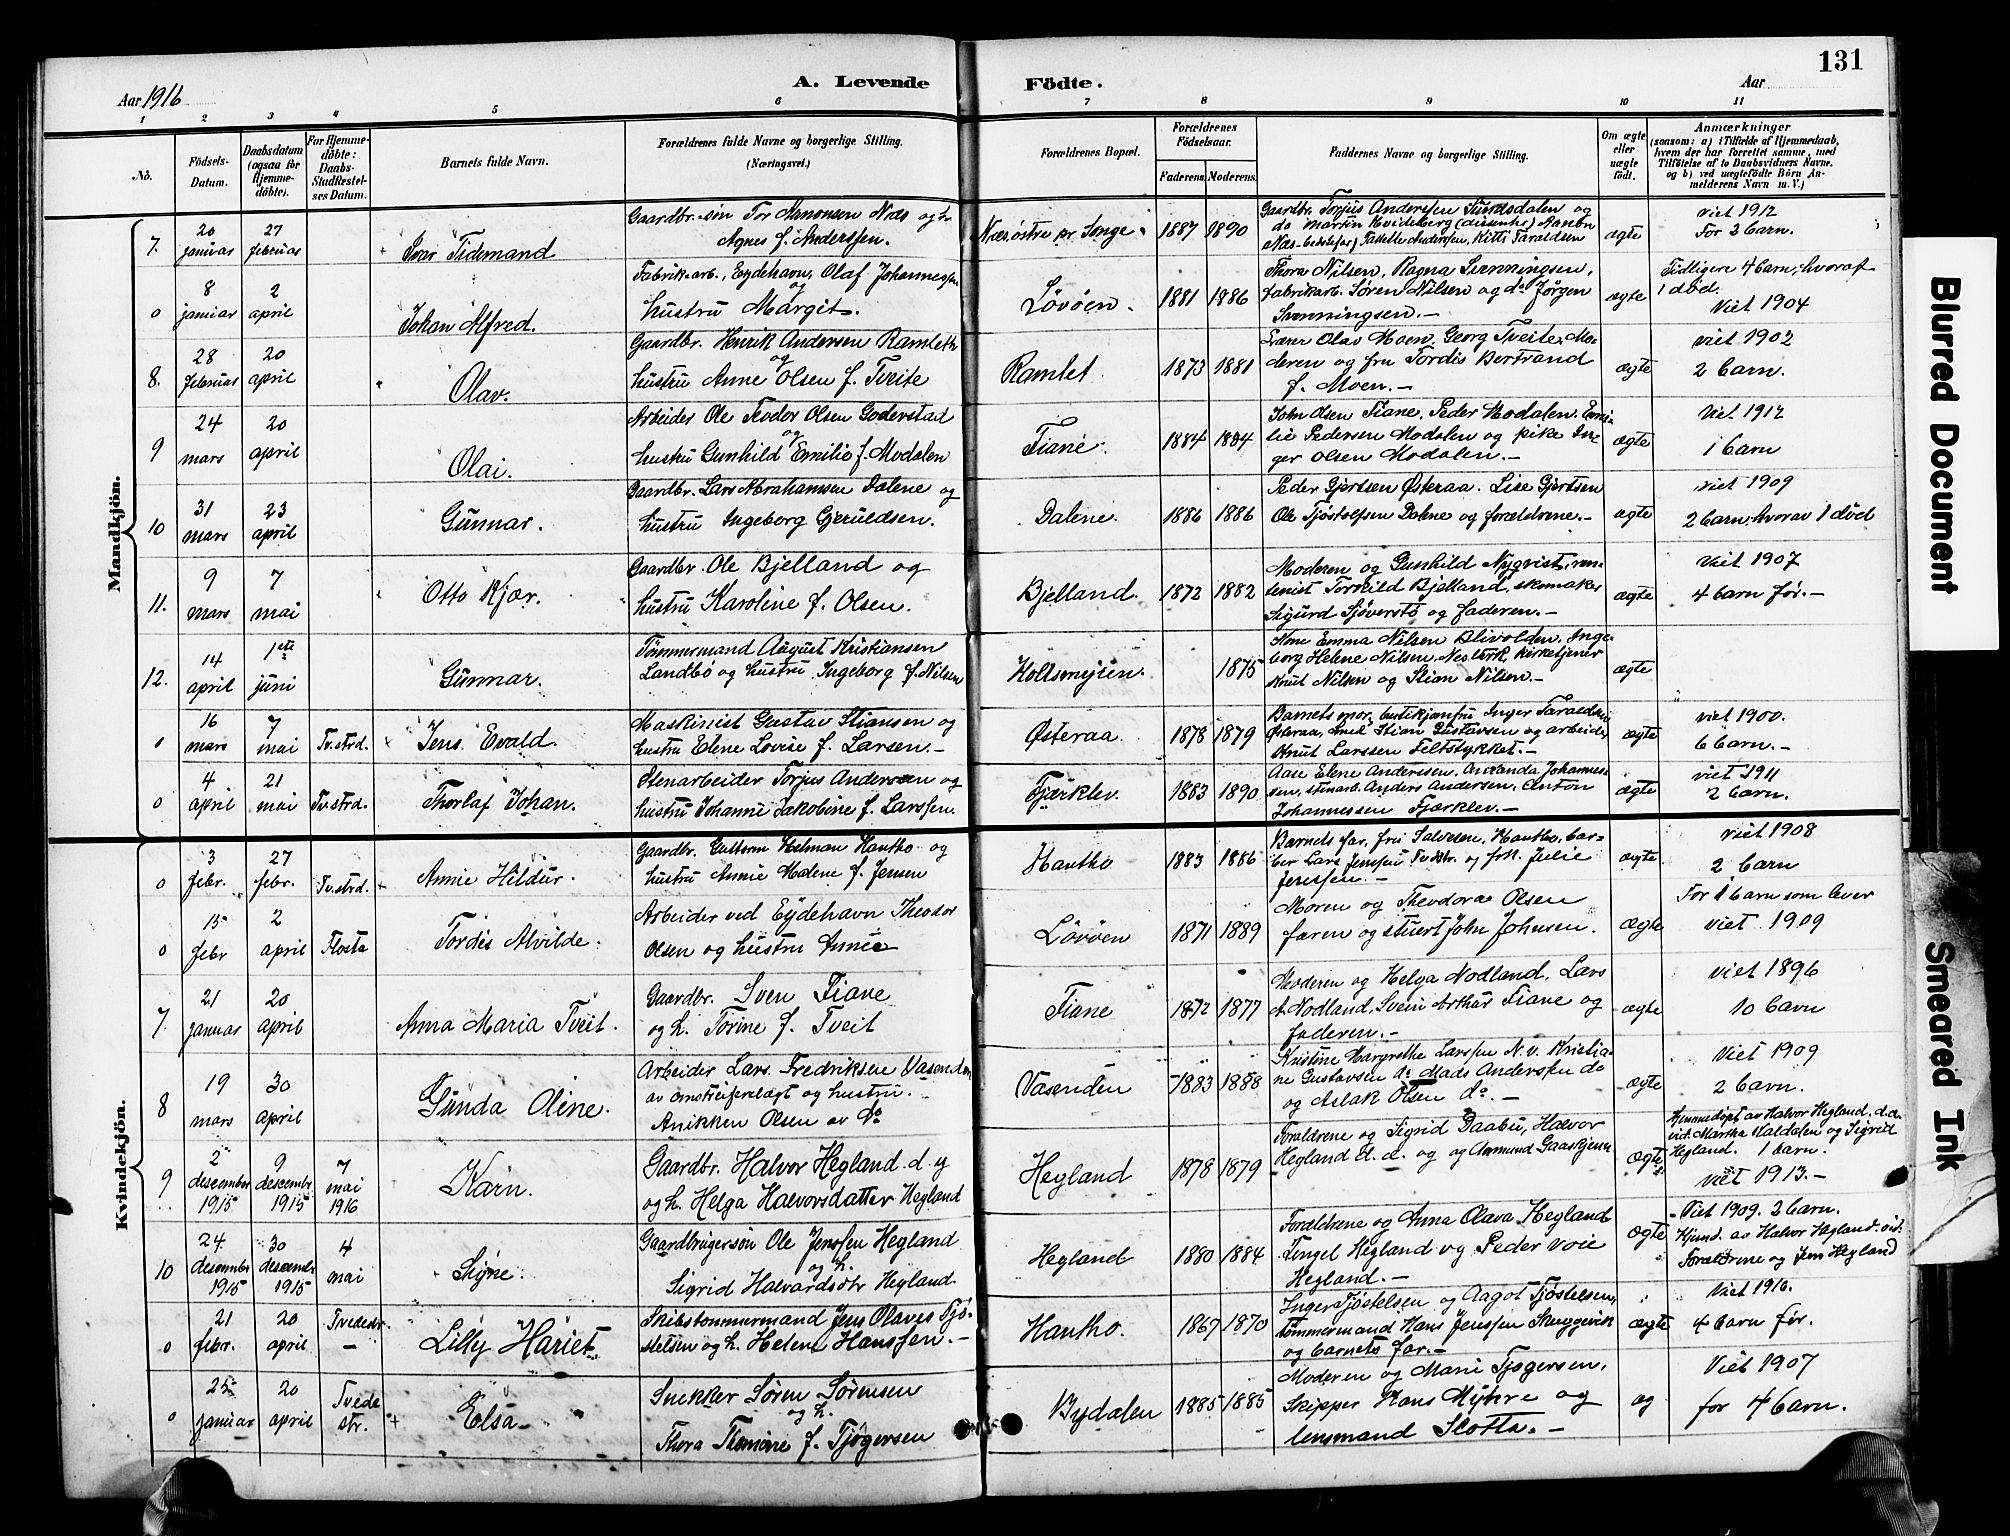 131
Aar 1916
A. Levende
Födte.
Aar
1 2 3 4 5 6 7 8 9 10 11
No.
Födsels-Datum.
Daabsdatum (ogsaa for Hjemme-döbte).
For Hjemme-döbte: Daabs-Stadfæstel-ses Datum.
Barnets fulde Navn.
Forældrenes fulde Navne og borgerlige Stilling. (Næringsvei.)
Forældrenes Bopæl.
Forældrenes Födselsaar.
Faderens. Moderens.
Faddernes Navne og borgerlige Stilling.
Om ægte eller uægte födt.
Anmærkninger
(saasom: a) i Tilfælde af Hjemmedaab,
hvem der har forrettet samme, med
Tilföielse af to Daabsvidners Navne,
og b) ved uægtefödte Börn An-
melderens Navn m. V.)
Mandkjön.
7. 20 januar 27 februar
Ivar Tidemand
Gaardbr.-søn Tor Aanonsen Næs og h.
Agnes f. Anderssen.
Næs, østre pr Songe.
1887 1890
Gaardbr. Torjus Anderssen Sundsdalen og
ægte
viet 1912
For 2 barn.
0 8 januar 2 april
Johan Alfred.
Fabrik-arb., Eydehavn, Olaf Johannessen
og
hustru Margit.
Løvøen.
1881 1886
Thora Nilsen, Ragna Svenningsen,
fabrikarb. Søren Nilsen og do Jørgen
Svenningsen.-
ægte
Tidligere 4 barn, hvoraf
1 død.
Viet 1904
8. 28 februar 20 april
Olav.
Gaardbr. Henrik Andersen Ramleth
og
hustru Anne Olsen f. Tveite
Ramlet.
1873 1881
Lærer Olav Moen, Georg Tveite, Mo-
deren og fru Tordis Bertrand
f. Moen.-
ægte
viet 1902
2 barn.
9 24 mars 20 april
Olai.
Arbeider Ole Teodor Olsen Goderstad
og
hustru Gunhild Emilie f. Modalen
Fiane.
1884 1884
John Olsen Fiane, Peder Modalen, Emi-
lie Pedersen Modalen og pike In-
ger Olsen Modalen.-
ægte
Viet 1912
1 barn
10 31 mars 23 april
Gunnar.
Gaardbr. Lars Abrahamsen Dalene og
hustru Ingeborg Gjeruldsen.
Dalene.
1886 1886
Peder Gjertsen Østeraa. Lise Gjertsen
Ole Tjøstolfsen Dalene og forældrene.-
ægte
viet 1909
2 barn, hvorav 1 død
11. 9 mars 7 mai
Otto Kjær.
Gaardbr. Ole Bjelland og
hustru Karoline f. Olsen.
Bjelland.
1872 1882
Moderen og Gunhild Nyqvist, ren-
tenist Torkild Bjelland, skomaker
Sigurd Sjøverstø og faderen.-
ægte
Viet 1907
4 barn før.-
12. 14 april 1ste juni
Gunnar.
Tømmermand August Kristiansen
Landbø og hustru Ingeborg f. Nilsen
Holtsmyren.
1875
Kone Emma Nilsen Blivolden, Inge-
borg Helene Nilsen, Nesverk, kirketjener
Knut Nilsen og Stian Nilsen.-
ægte
0 16 mars 7 mai Tv.strd.
Jens Evald
Maskinist Gustav Stiansen og
hustru Elene Lovise f. Larsen.-
Østeraa.
1878 1879
Barnets mor, Inger Taraldsen
Østeraa, Stian Gustavsen og arbeider
Knut Larssen Feltstykket.-
ægte
viet 1900.
6 barn.-
0 4 april 21 mai Tv.strd.
Thorlaf Johan.
Stenarbeider Torjus Andersen og
hustru Johanne Jakobine f. Larssen.
Fjærklev.
1883 1890
Aase Elene Anderssen, Andenda Johannes-
sen, stenarb. Anders Andersen, Anton
Johannessen Fjærklev.-
ægte
viet 1911
2 barn.
Kvindekjön.
0 3 febr. 27 febr. Tv.strd.
Annie Hildur.
Gaardbr. Gustorm Helman Hantho og
hustru Annie Malene f. Jensen
Hantho
1883 1886
Barnets far, fru Salvesen, Hantho, bar-
ber Lars Jenssen Tv.str. og frk. Julie
Jenssen.-
ægte
viet 1908
2 barn
0 15 febr 2 april Flosta
Tordis Alvilde.
Arbeider ved Eydehavn Theodor
Olsen og hustru Annie
Løvøen
1871 1889
Moren og Theodora Olsen
faren og stuert John Johnsen.
ægte
For 1 barn som lever
viet 1909
7. 21 januar 20 april
Anna Maria Tveit.
Gaardbr. Sven Fiane
og h. Torine f. Tveit
Fiane
1872 1877
Moderen og Helga Nodland, Lars
A. Nodland, Svein Arthur Fiane og
faderen.-
ægte
viet 1896
10 barn
8 19 mars 30 april
Gunda Oline.
Arbeider Lars Fredriksen Vasenden
av omstreiferslægt og hustru
Anikken Olsen av do
Vasenden
1883 1888
Kristine Margrethe Larssen N.v. Kristia-
ne Gustavsen do Mads Anderssen do
og Aslak Olsen do.-
ægte
Viet 1909
2 barn.
9 2 desember 1915 9 desembr. 1915 7 mai 1916
Karn.
Gaardbr. Halvor Hegland d. y
og h. Helga Halvorsdatter Hegland
Hegland
1878 1879
Forældrene og Sigrid Daabu, Halvor
Hegland d. d. og og Aanmund Gaaskjenn
ægte
Hjemmedøpt av Halvor Hegland. d.d.
vid. Martha Haldalen og Sigrid
Hegland. 1 barn.
viet 1913.-
10 24 desember 1915 30 desembr 1915 4 mai
Signe.
Gaardbrugersøn Ole Jenssen Hegland
og h.
Sigrid Halvardsdtr Hegland
Hegland
1880 1884
Forældrene og Anna Olava Hegland
Tengel Hegland og Peder Voie
Hegland.-
ægte
Viet 1909. 2 barn.
Hjmd. av Halvor Hegland. vid.
Forældrene og Jens Hegland
0 21 febr. 20 april Tvedestr.
Lilly Hariet
Skibstømmermand Jens Olaves Tjø-
stelsen og h. Helene Hanssen.-
Hantho.
1867 1870
Inger Tjøstelsen og Aagot Tjøstelsen,
tømmermand Hans Jenssen Skuggevik
og barnets far.-
ægte
Viet 1910.
4 barn før.
0 25 januar 20 april Tvede str.
Elsa
Snekker Søren Sørensen
og h.
Thora Thomine f. Tjøgersen
Bydalen
1885 1885
Moderen og Marie Tjøgersen,
Skipper Hans Myhre og
lensmand Slotta.-
og
Viet 1907
for 4 barn.
Blurred Document
Smeared Ink